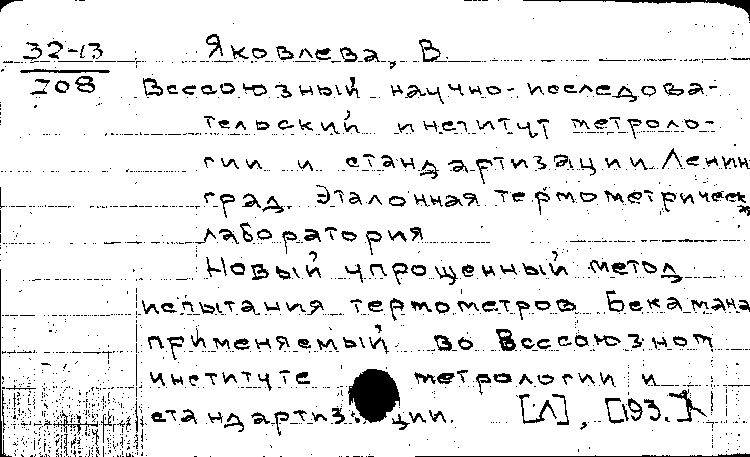 32-13 Яковлева, В.
708 Всесоюзный научно-исследова-
тельский институт метроло-
гии и стандартизации Ленин
град. Эталонная термометрическ
ая
лаборатория
Новый упрощенный метод
испытания термометров Бекмана
применяемый во Всесоюзном
институте метрологии и
стандартизации. [Л], [193.]